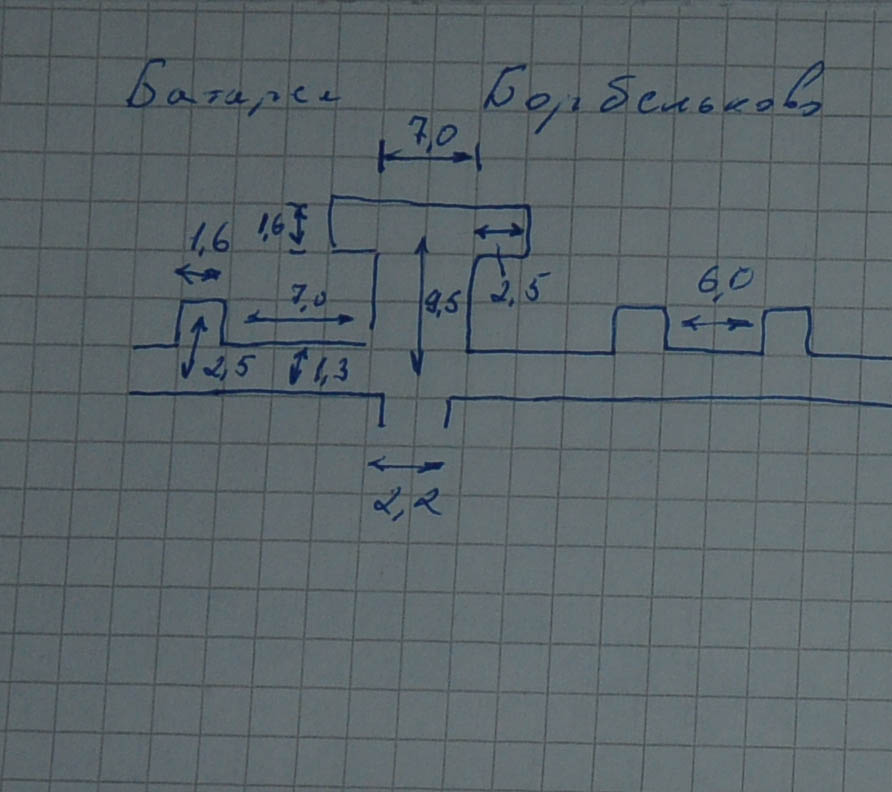 Батарея Борбельково
7,0
1,6
1,6
7,0
9,5
2,5
6,0
2,5
1,3
2,2